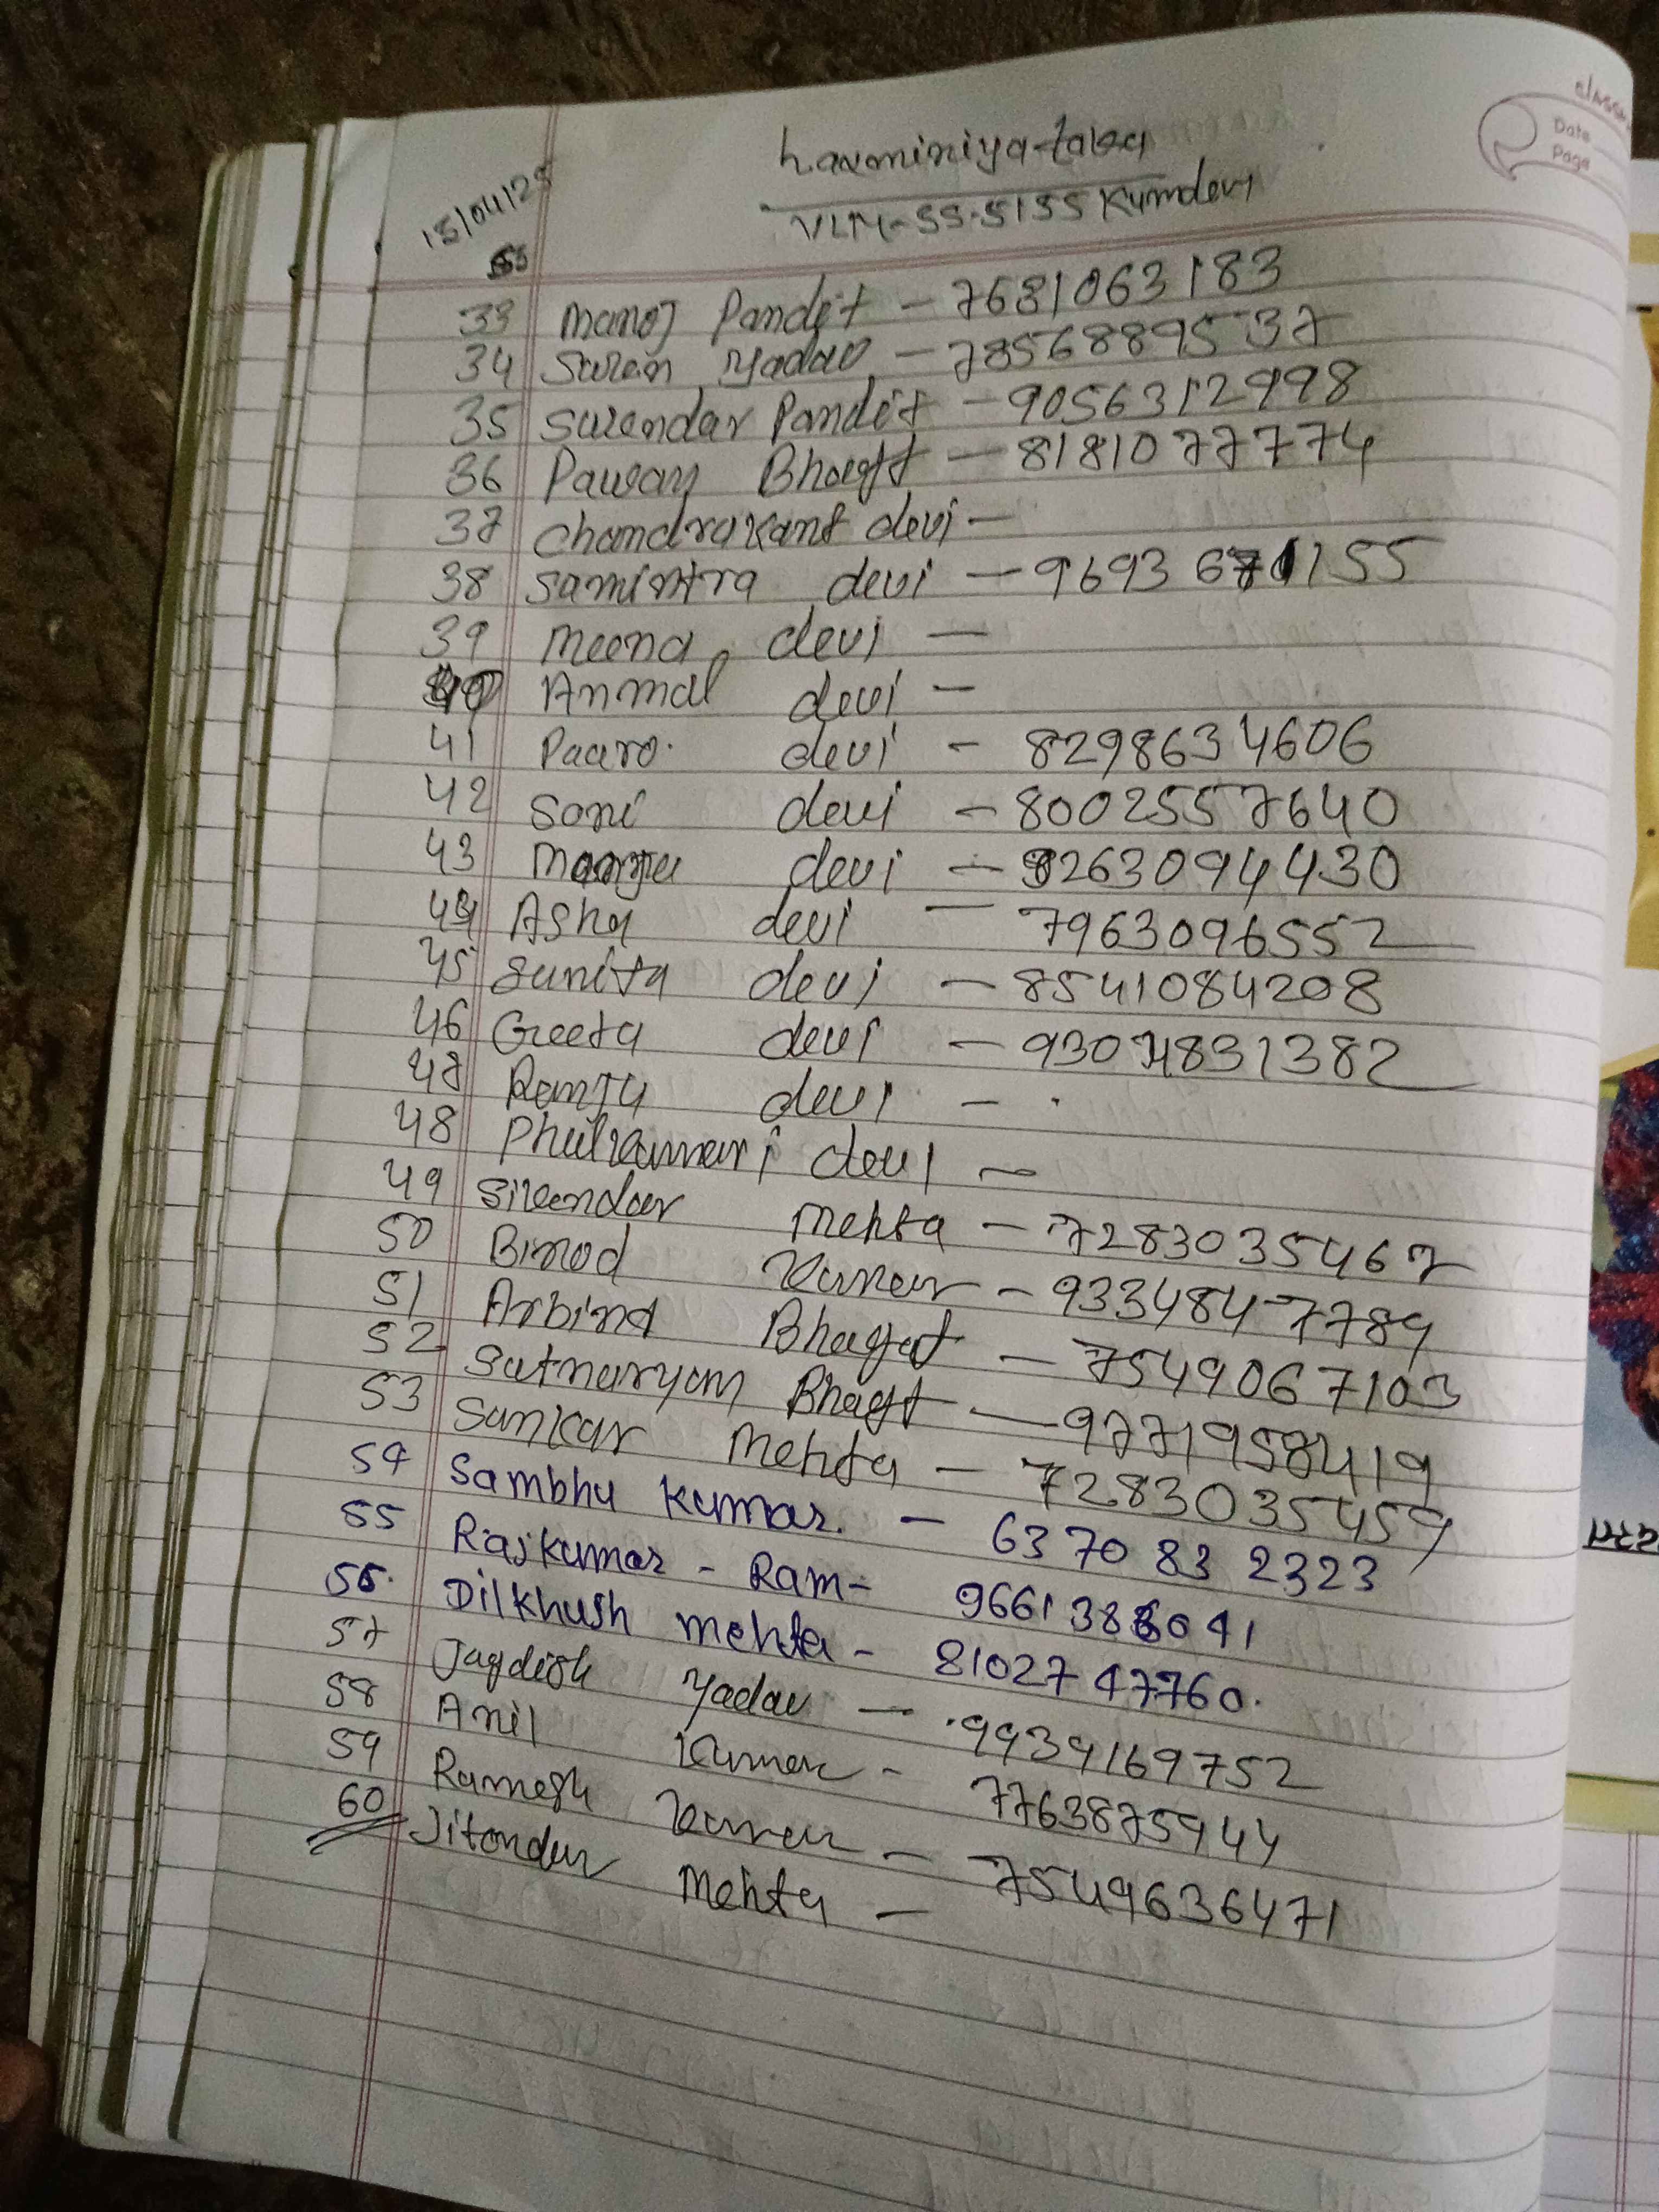 classmate
Date
Page
15/04/25
Laxminiya tola
VLM-SS-5155 Kumdevi
33 Manoj Pandit - 7681063183
34 Suren Yadav - 7856889537
35 Surendar Pandit - 9056312998
36 Pawan Bhagt - 8181077774
37 Chandrakant devi -
38 Samintra devi - 9693671155
39 Meena devi -
40 Anmol devi -
41 Paaro devi - 8298634606
42 Soni devi - 8002557640
43 Manju devi - 9263094430
44 Asha devi - 7963096552
45 Sunita devi - 8541084208
46 Geeta devi - 9304831382
47 Ranju devi -
48 Phulkumari devi -
49 Sikendar Mehta - 7283035467
50 Binod Kumar - 9334847789
51 Arbind Bhagat - 7549067103
52 Satnaryam Bhagt - 9771958419
53 Sankar Mehta - 7283035459
54 Sambhu Kumar. - 6370 83 2323
55 Rajkumar - Ram - 9661386041
56. Dilkhush Mehta - 8102747760.
57 Jagdish Yadav - 9939169752
58 Anil Kumar - 7763875944
59 Ramesh Kumar - 7549636471
60 Jitendar Mehta -